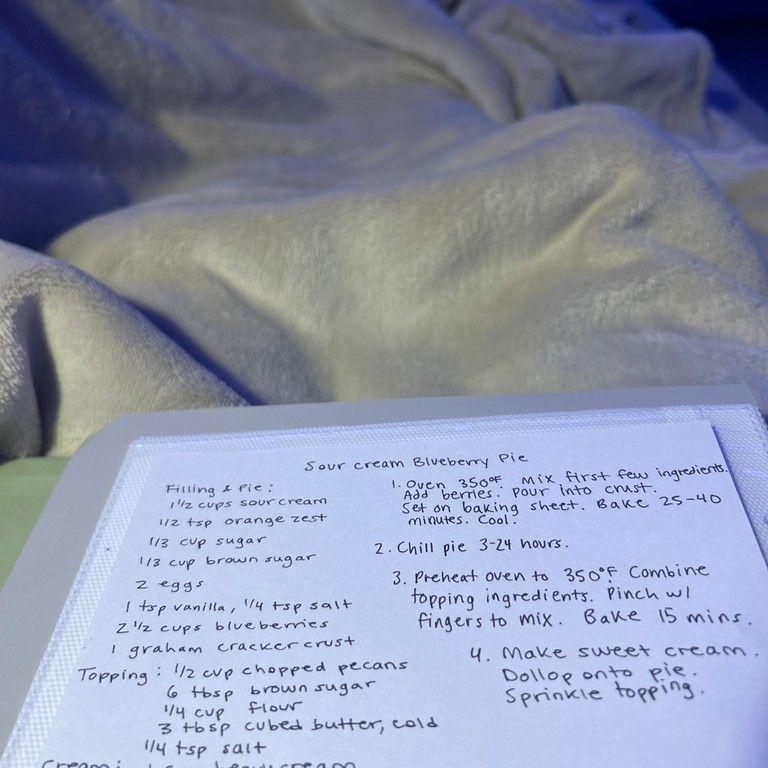 Sour cream Blueberry Pie
Filling & Pie:
1 1/2 cups sour cream
1/2 tsp orange zest
1/3 cup sugar
1/3 cup brown sugar
2 eggs
1 tsp vanilla, 1/4 tsp salt
2 1/2 cups blueberries
1 graham cracker crust
Topping: 1/2 cup chopped pecans
6 tbsp brown sugar
1/4 cup flour
3 tbsp cubed butter, cold
1/4 tsp salt
Cream: heavy cream
1. Oven 350°F. Mix first few ingredients.
Add berries. Pour into crust.
Set on baking sheet. Bake 25-40
minutes. Cool.
2. Chill pie 3-24 hours.
3. Preheat oven to 350°F Combine
topping ingredients. Pinch w/
fingers to mix. Bake 15 mins.
4. Make sweet cream.
Dollop onto pie.
Sprinkle topping.